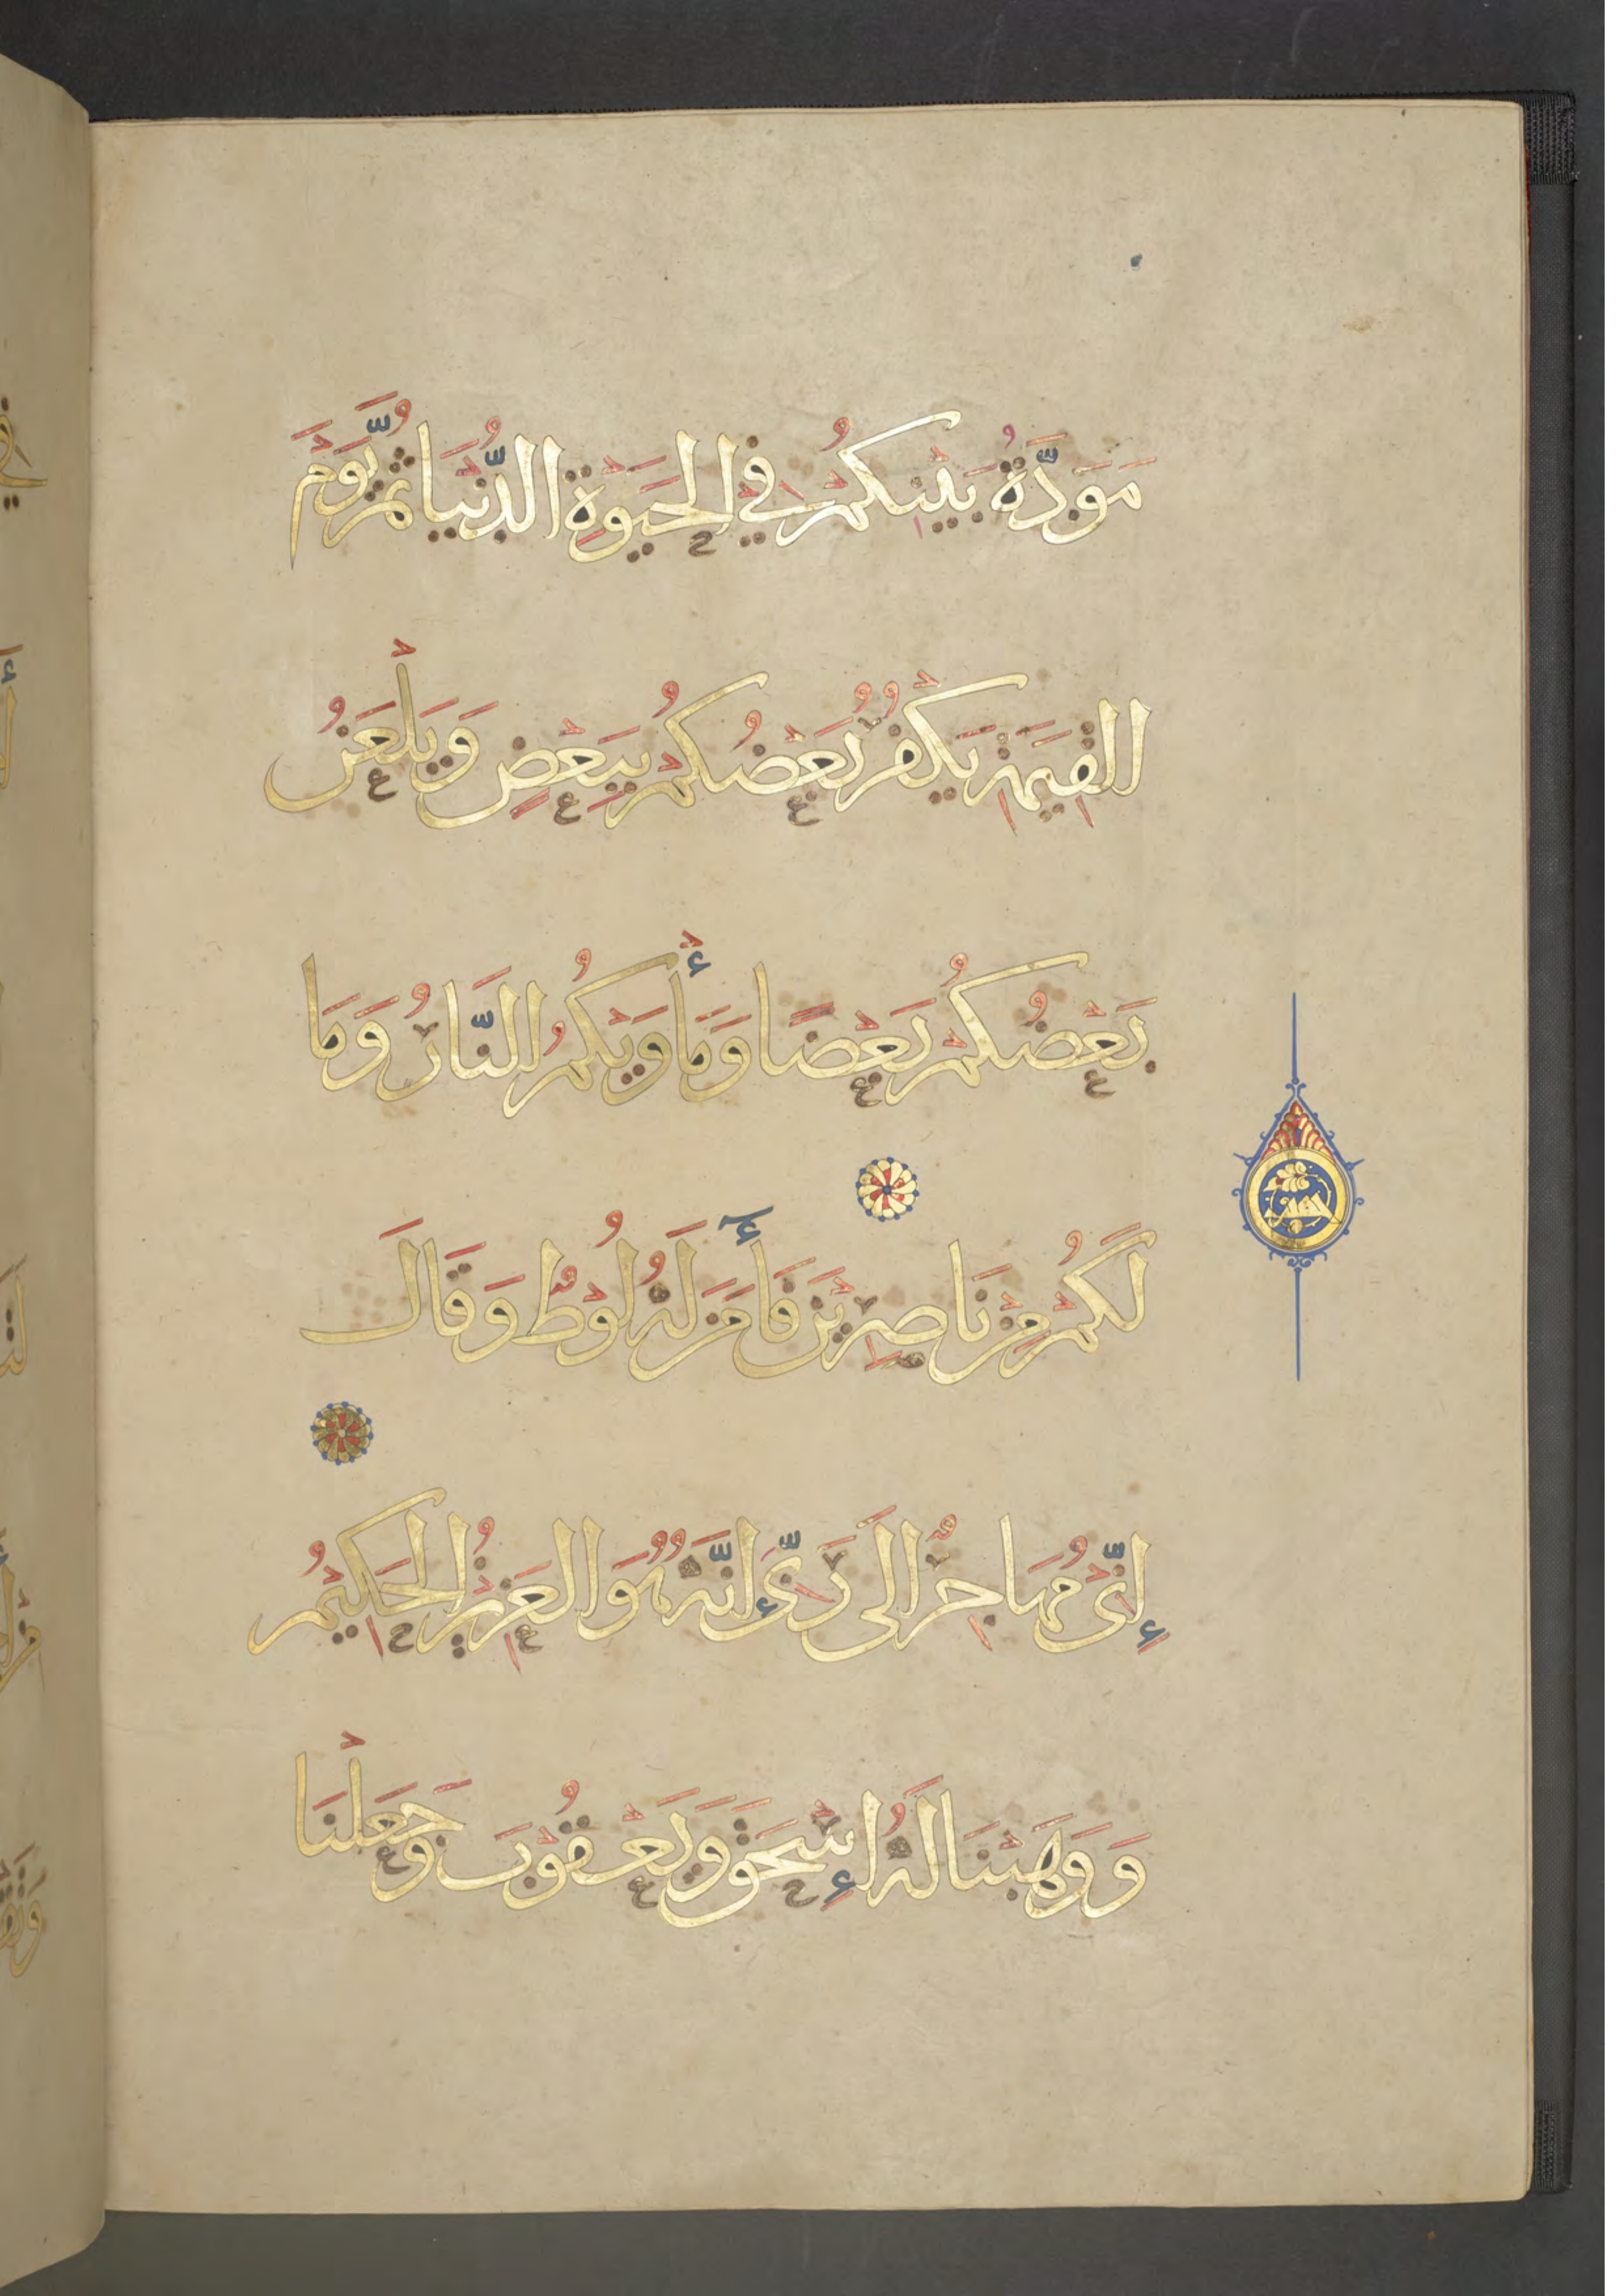 مَوَدَّةُ بَيْنِكُمْ فِي الْحَيَوةِ الدُّنْيَا ثُمَّ يَوْمَ
الْقِيٰمَةِ يَكْفُرُ بَعْضُكُمْ بِبَعْضٍ وَيَلْعَنُ
بَعْضُكُمْ بَعْضًا وَمَأْوَيٰكُمُ النَّارُ وَمَا
لَكُمْ مِنْ نَاصِرِيْنَ فَأٰمَنَ لَهُ لُوْطٌ وَقَالَ
إِنِّى مُهَاجِرٌ إِلَى رَبِّى إِنَّهُ هُوَ الْعَزِيْزُ الْحَكِيْمُ
وَوَهَبْنَا لَهُ إِسْحَقَ وَيَعْقُوْبَ وَجَعَلْنَا